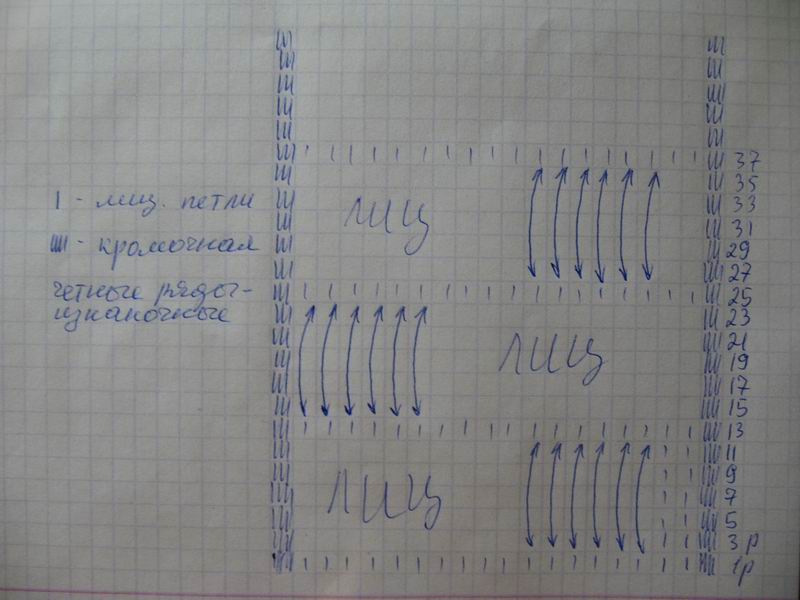 37
35
I - лиц. петли
лиц
33
31
Ш - кромочная
29
27
четные ряды-
изнаночные
25
23
лиц
21
19
17
15
13
11
9
лиц
7
5
3 р
1р